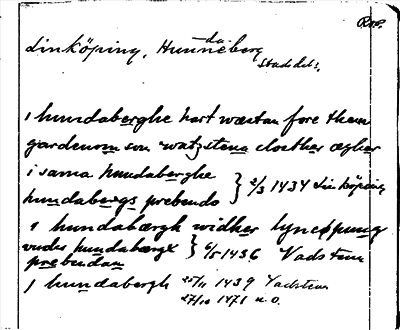 Linköping, Hunneberg
stadsdel.
i hundaberghe hart wæstan fore them
gardenom som watzstena closther ægher
i sama hundaberghe } 2/3 1434 Linköping
hundabergs prebendo
i hundabærgh widher lyncøpung
vndes hundabergx } 6/5 1436 Vadsten
prebendam
j hundabergh 25/11 1439 Vadstena
27/10 1471 u.o.